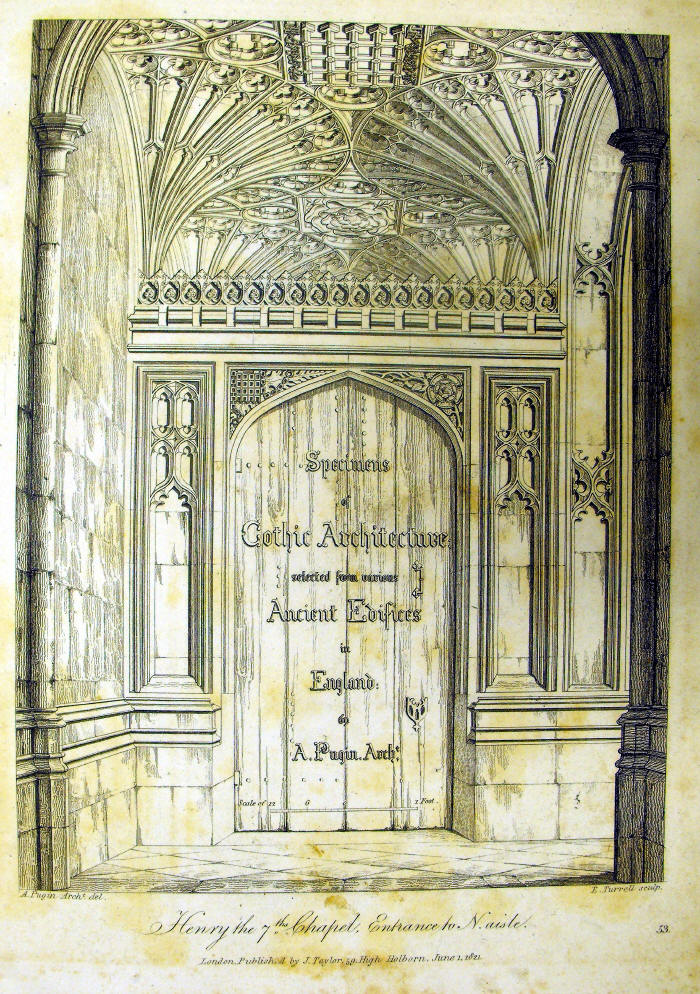 Specimens
of
Gothic Architecture;
selected from various
Ancient Edifices
in
England:
by
A. Pugin. Archt.
Scale of 12 6 1 Foot
A. Pugin Archt. del.
E. Turrell sculp.
Henry the 7ths. Chapel, Entrance to N. aisle.
53.
London, Publish.d by J. Taylor, 59, High Holborn, June 1, 1821